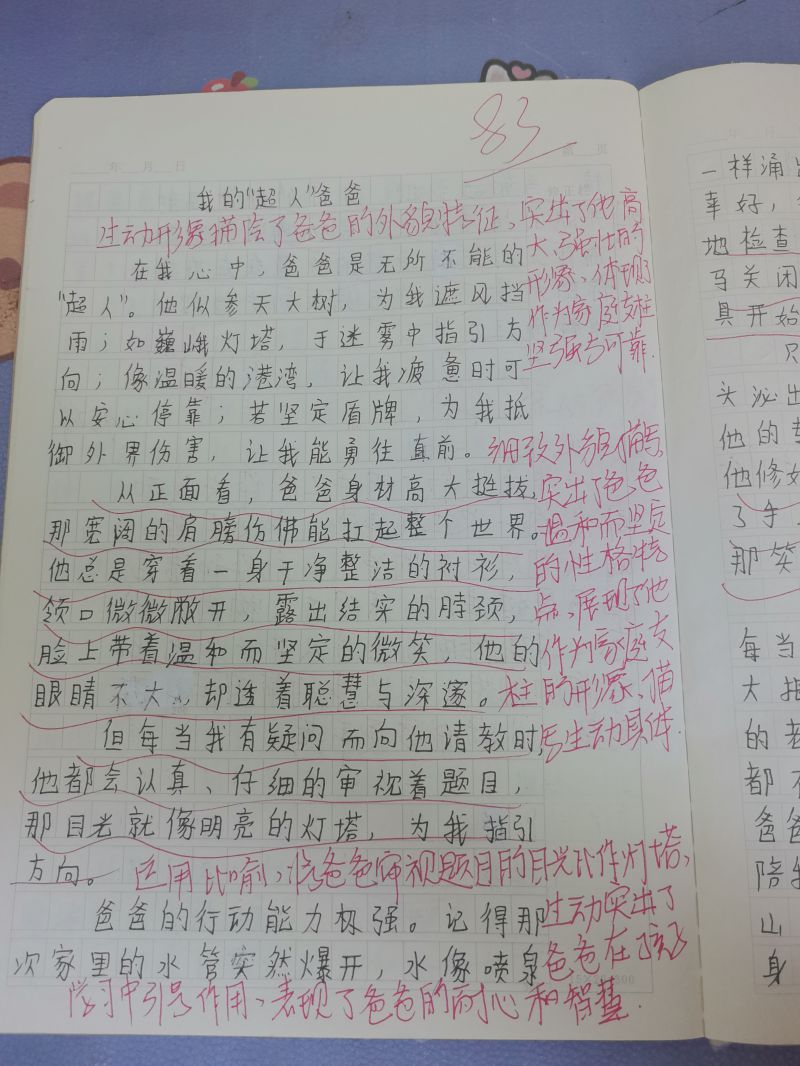 83
年 月 日
第 页
我的“超人”爸爸
生动形象描绘了爸爸的外貌特征,突出了他高
大、强壮的
形象、体现了
作为家庭支柱
坚强与可靠.
在我心中,爸爸是无所不能的
“超人”。他似参天大树,为我遮风挡
雨;如巍峨灯塔,于迷雾中指引方
向;像温暖的港湾,让我疲惫时可
以安心停靠;若坚定盾牌,为我抵
御外界伤害,让我能勇往直前。
细致外貌描写,
突出了爸爸
温和而坚定
的性格特
点、展现了他
作为家庭支
柱的形象、描
写生动具体.
从正面看,爸爸身材高大挺拔,
那宽阔的肩膀仿佛能扛起整个世界。
他总是穿着一身干净整洁的衬衫,
领口微微敞开,露出结实的脖颈,
脸上带着温和而坚定的微笑,他的
眼睛不大,却透着聪慧与深邃。
但每当我有疑问而向他请教时,
他都会认真、仔细的审视着题目,
那目光就像明亮的灯塔,为我指引
方向。
运用比喻,将爸爸审视题目的目光比作灯塔,
生动突出了
爸爸在孩子
学习中引导作用、表现了爸爸的耐心和智慧.
爸爸的行动能力极强。记得那
次家里的水管突然爆开,水像喷泉
年 月
一样涌出
幸好,
地检查
马关闭
具开始
头泌出
他的
他修好
了手
那笑
每当
大把
的老
都不
爸爸
陪我
山
身